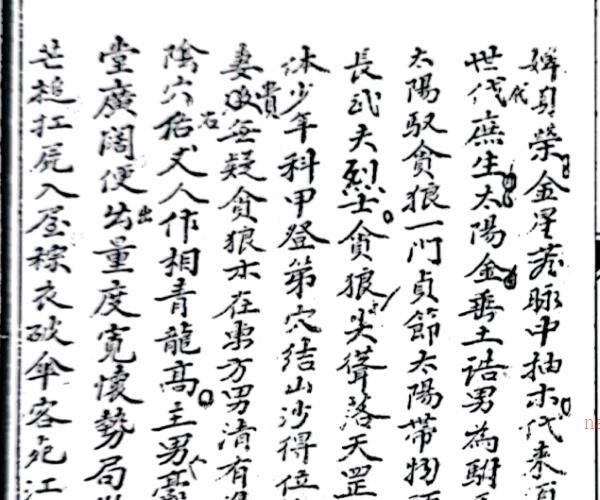 嬋自榮金星落脉中抽木代來
世代產生太陽金垂土誥男為駙
太陽馭貪狼一門貞節太陽帶物
長武夫烈士貪狼尖聳落天罡
休少年科甲登第穴結山沙得位
妻貴無疑貪狼木在東方男清有
陰穴佑丈人作相青龍高主男
堂廣闊便出量度寬懷勢局
芒槌扛屍入屋稼衣破傘客死江